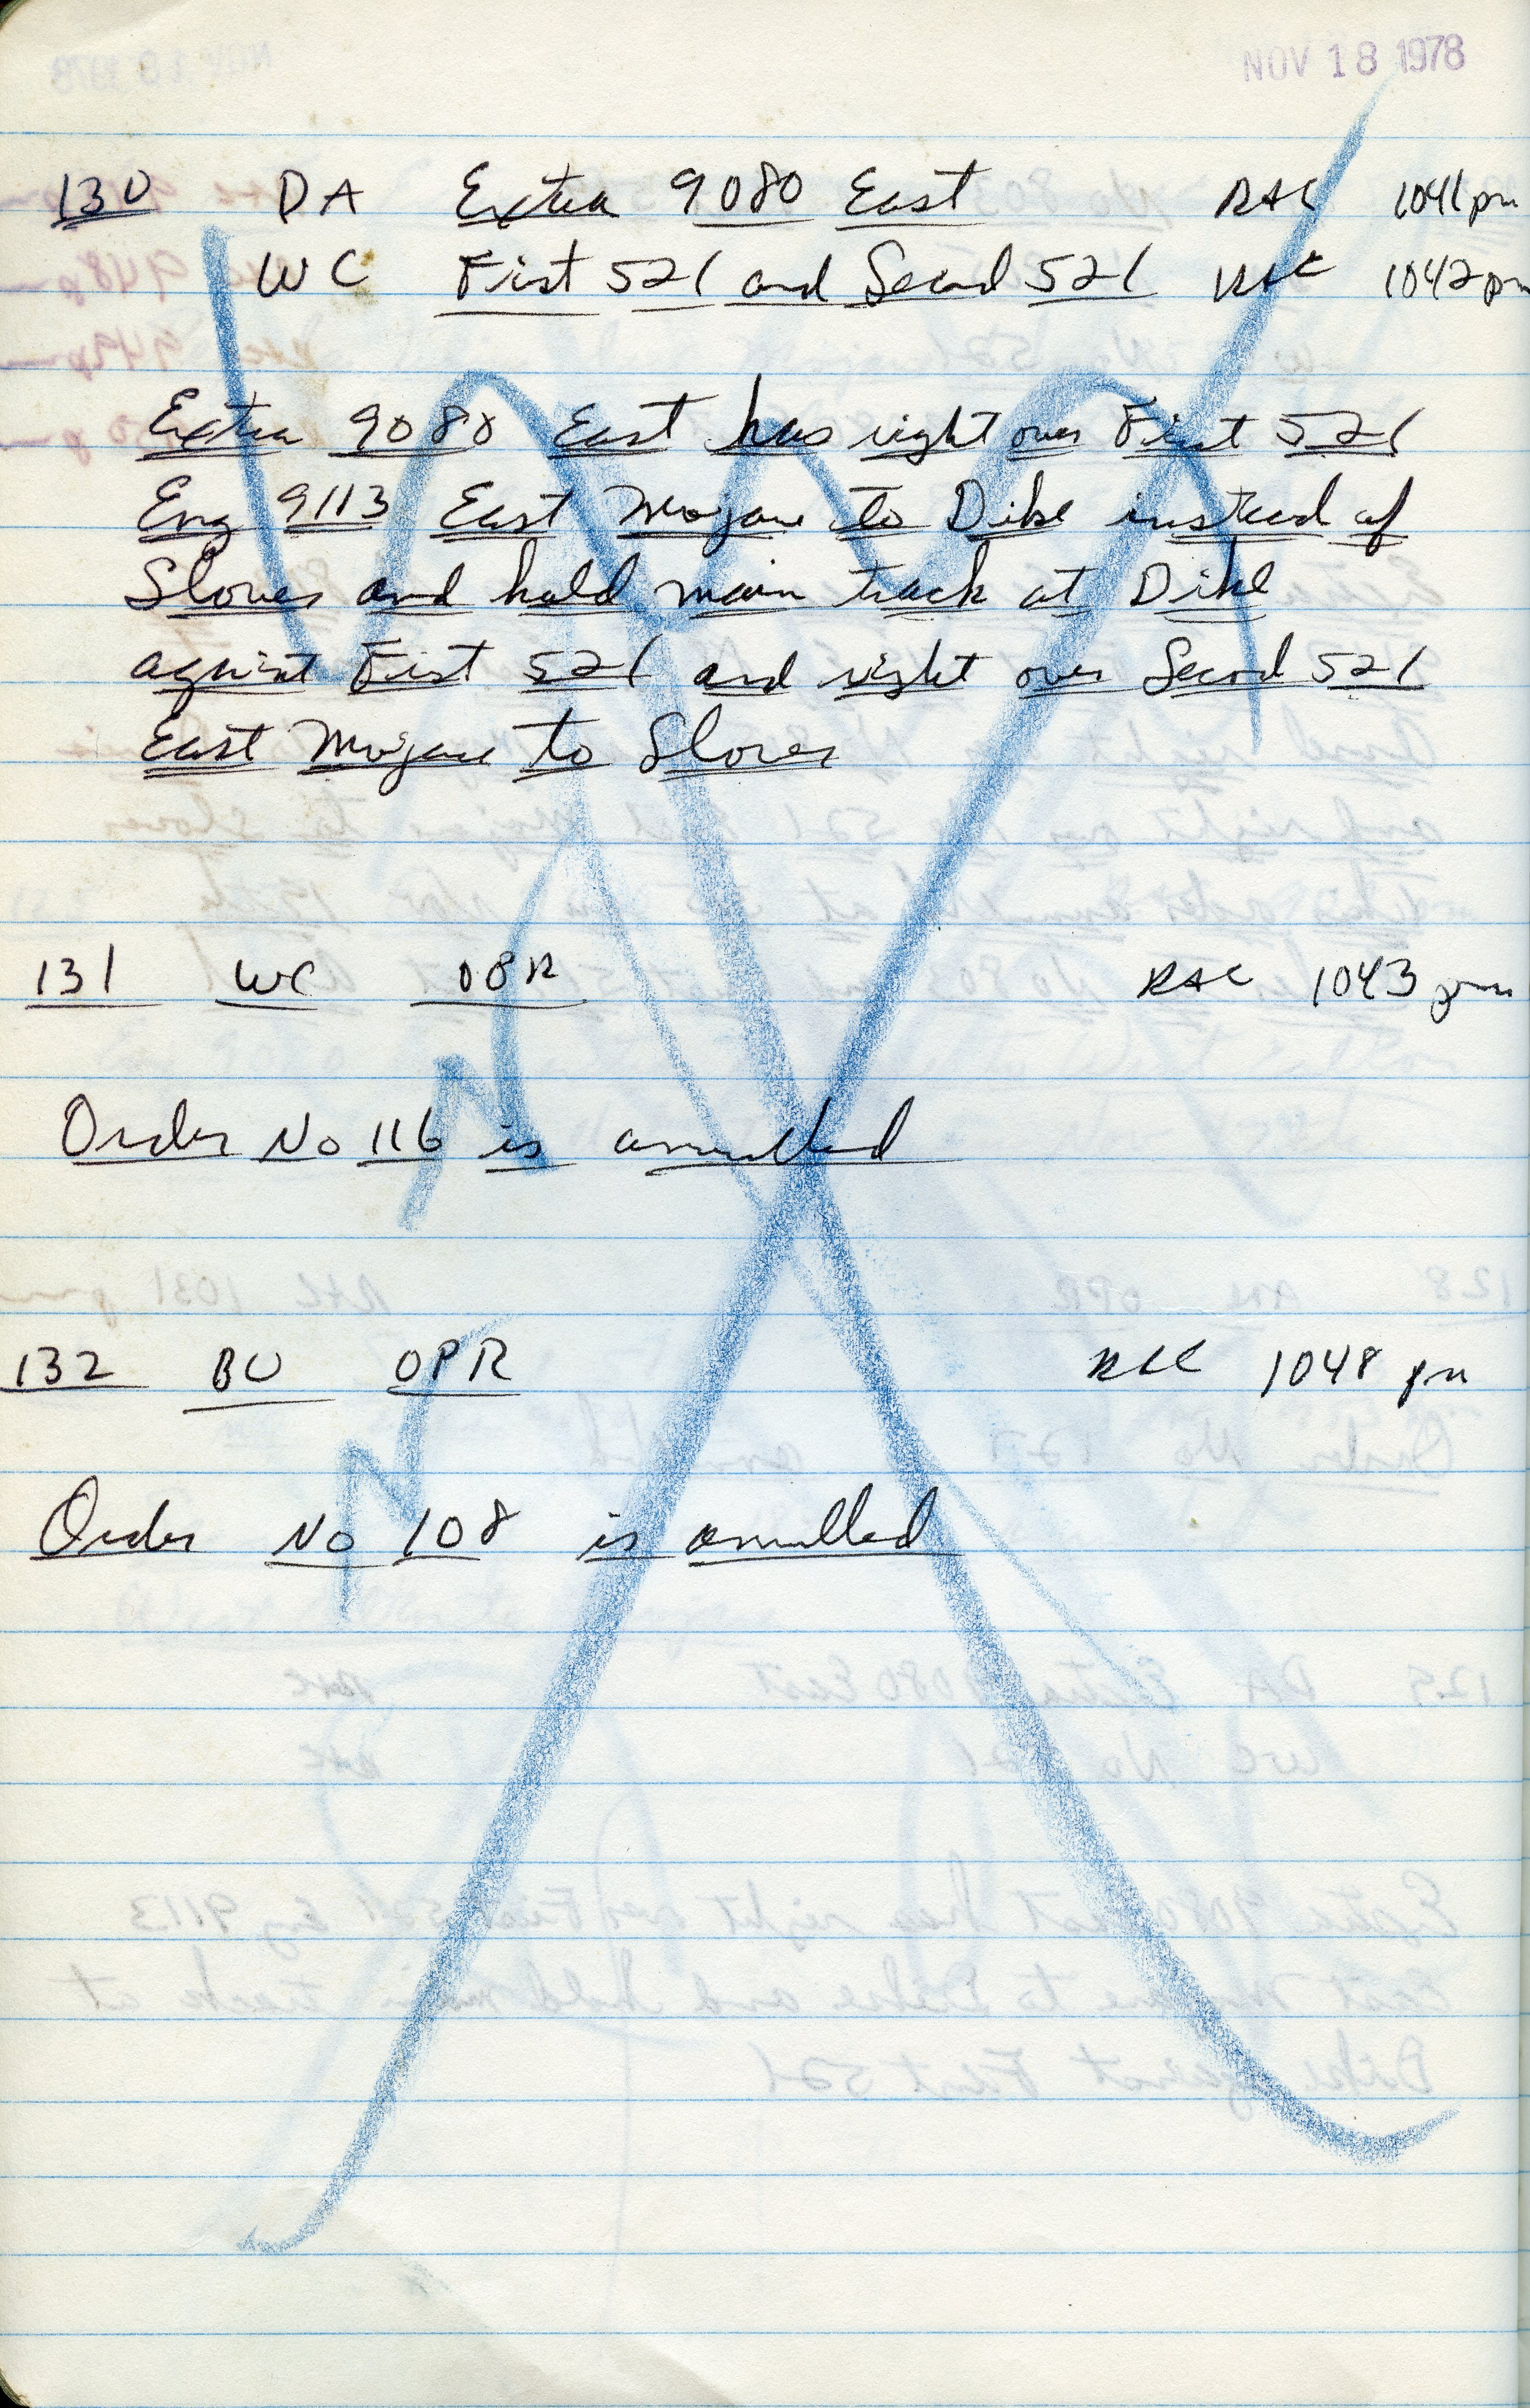 NOV 18 1978
130 DA Extra 9080 East RAC 1041 pm
WC First 521 and Second 521 RAC 1042 pm
Extra 9080 East has right over First 521
Eng 9113 East Mojave to Dike instead of
Slover and hold main track at Dike
against First 521 and right over Second 521
East Mojave to Slover
131 WC OPR RAC 1043 pm
Order No 116 is annulled
132 BU OPR RAC 1048 pm
Order No 108 is annulled